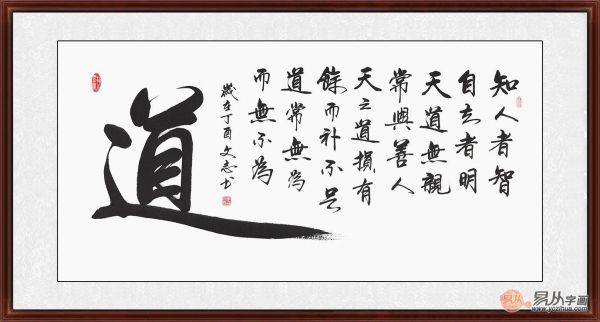 知人者智
自知者明
天道無親
常與善人
天之道損有
餘而补不足
道常無為
而無不為
歲在丁酉文志书
道
易从字画
www.yczihua.com